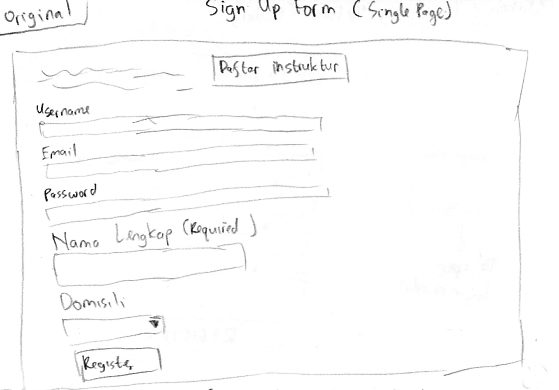 Original
Sign Up Form (Single Page)
Daftar instruktur
Username
Email
Password
Nama Lengkap (Required)
Domisili
Register